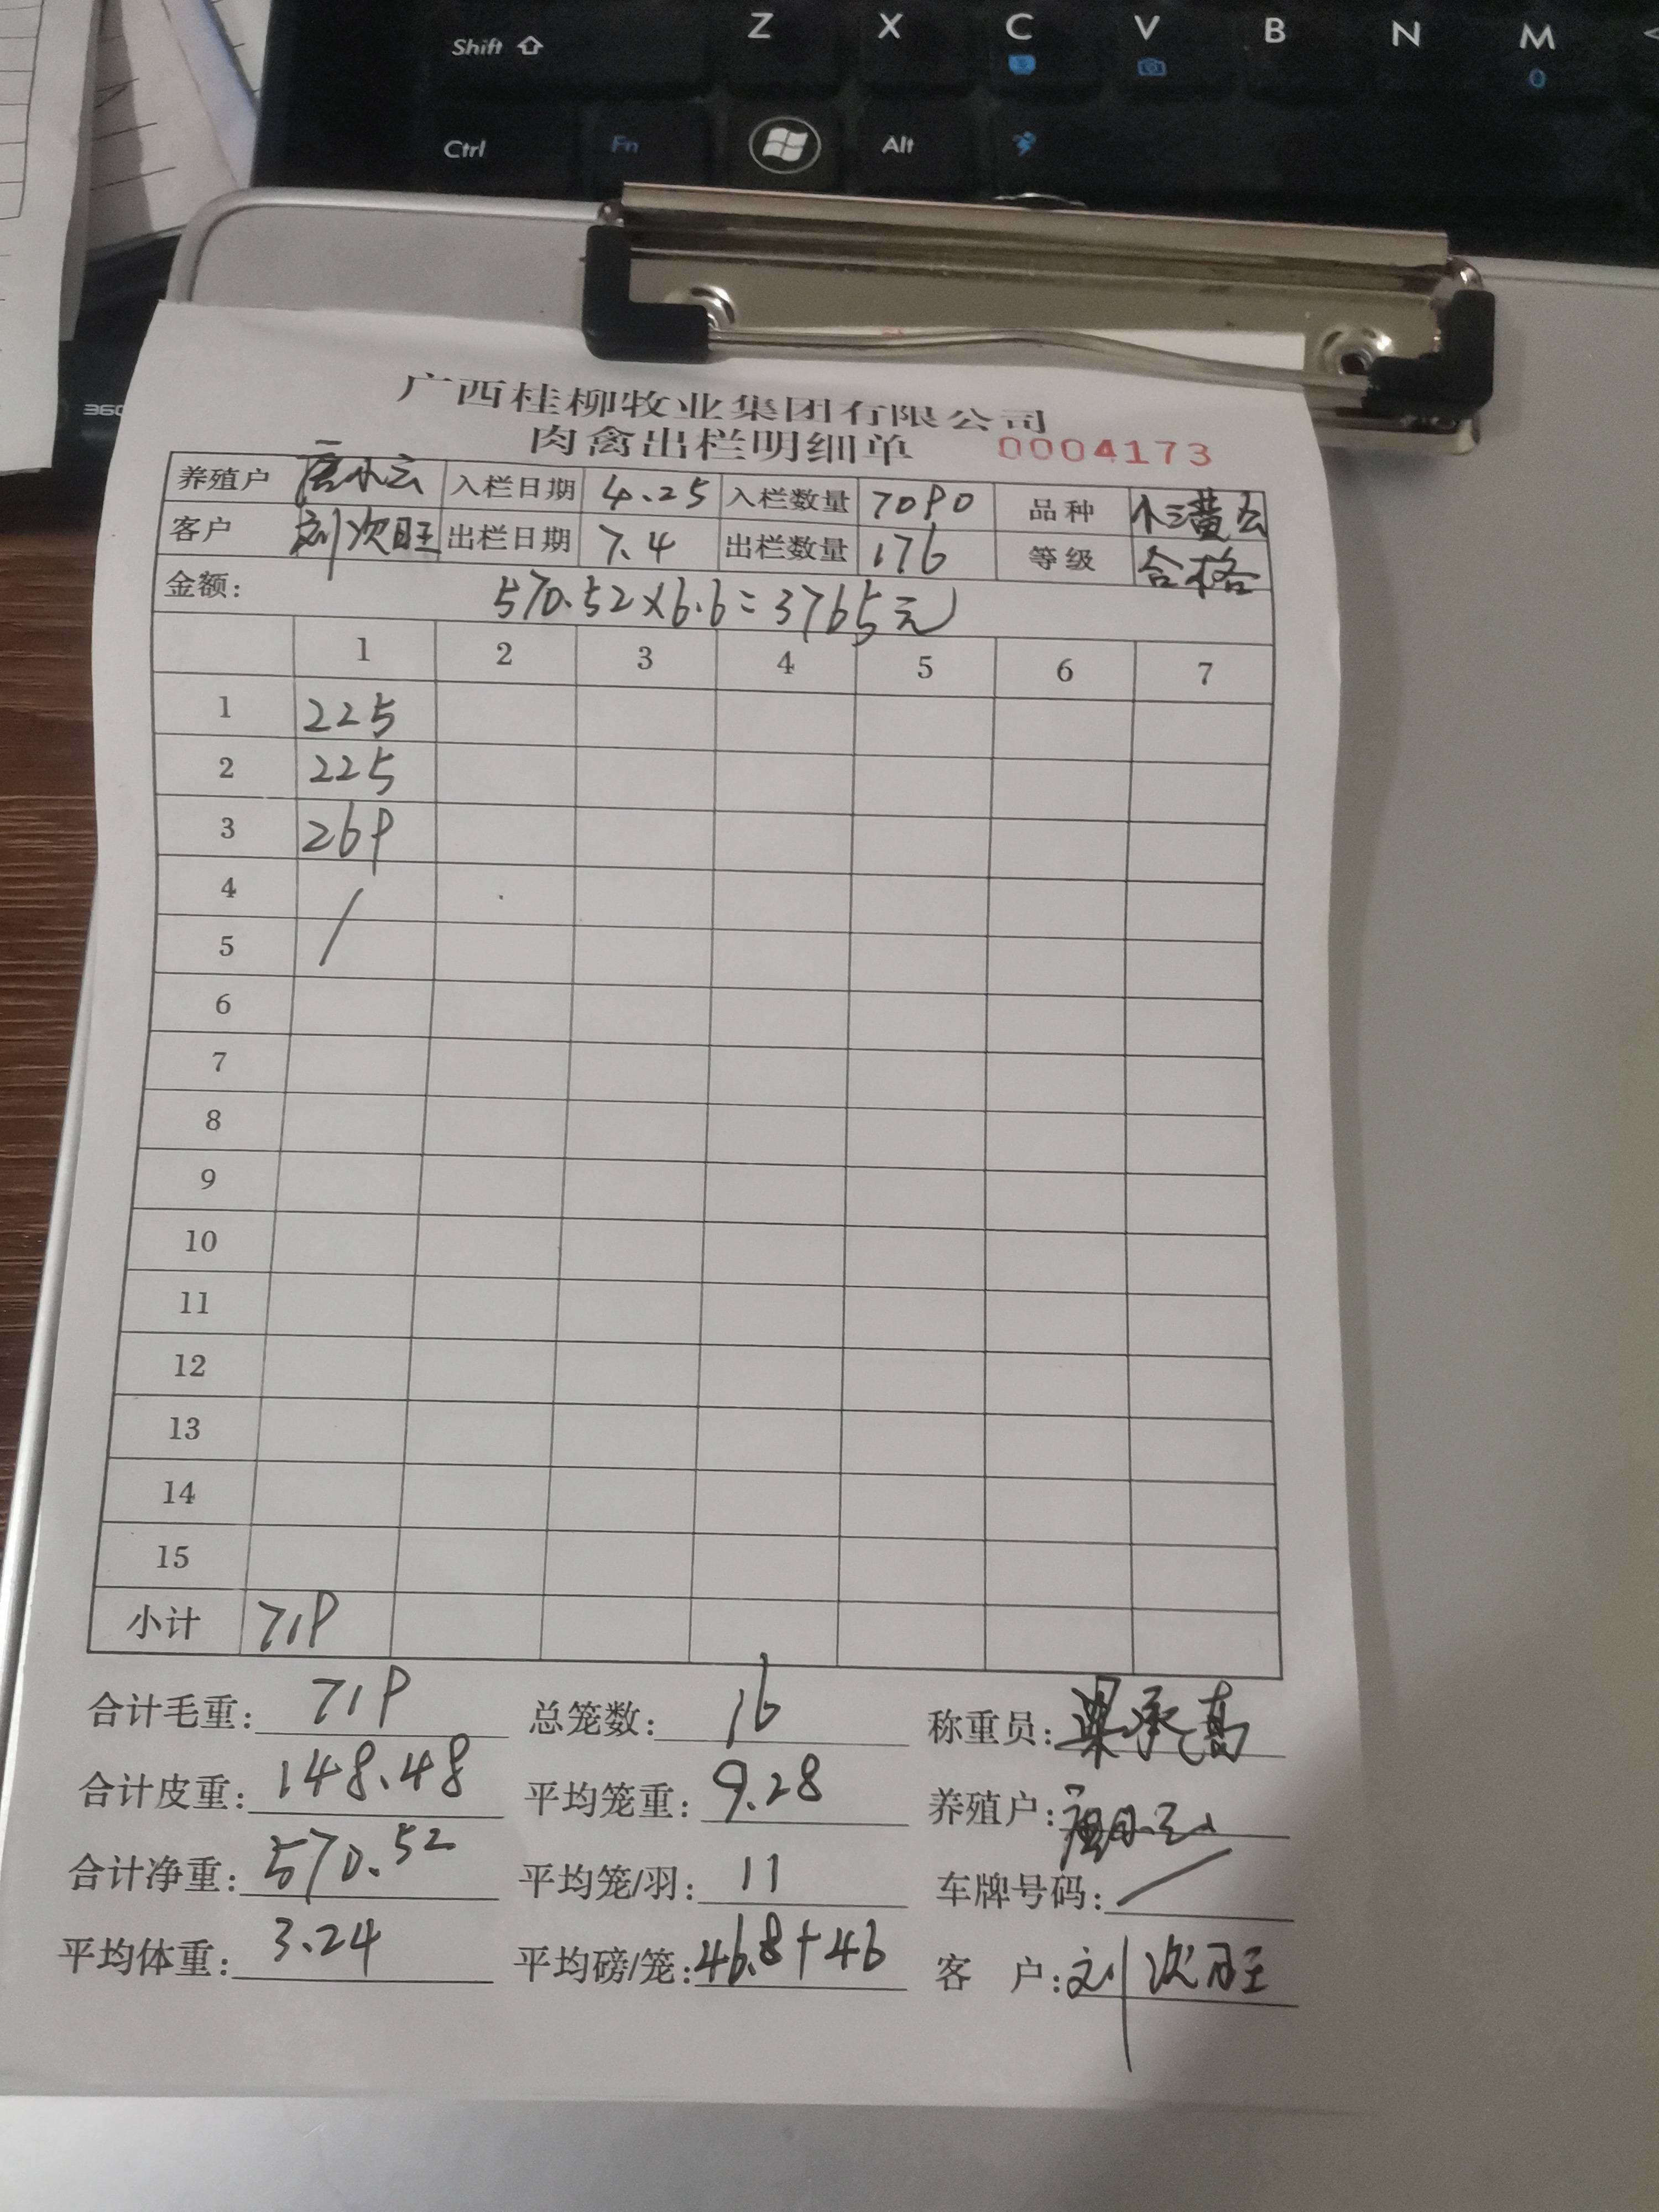 Shift Z X C V B N M
Ctrl Fn Alt
360
广西桂柳牧业集团有限公司
肉禽出栏明细单 0004173
养殖户 唐小云 入栏日期 4.25 入栏数量 7090 品种
客户 刘次旺 出栏日期 7.4 出栏数量 176 等级 合格
金额: 570.52×6.6=3765元
1 2 3 4 5 6 7
1 225
2 225
3 269
4 /
5
6
7
8
9
10
11
12
13
14
15
小计 719
合计毛重: 719 总笼数: 16 称重员: 梁承高
合计皮重: 148.48 平均笼重: 9.28 养殖户: 唐小云
合计净重: 570.52 平均笼/羽: 11 车牌号码: /
平均体重: 3.24 平均磅/笼: 46.8+46 客 户: 刘次旺